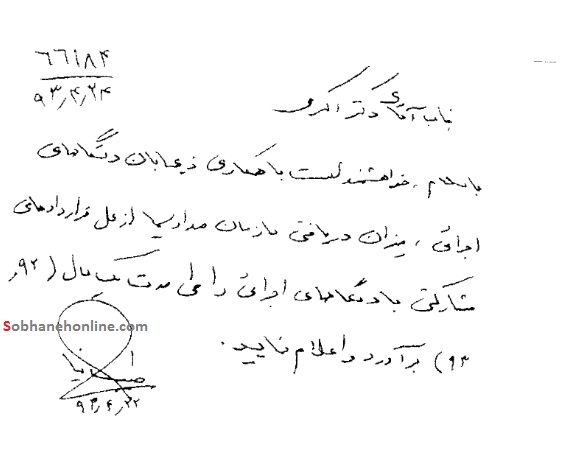 ۶۶۱۸۴
۹۳٫۴٫۲۴
جناب آقای دکتر اکرمی
باسلام، خواهشمند است با همکاری ذیحسابان دستگاههای
اجرائی، میزان دریافتی سازمان صداوسیما از محل قراردادهای
مشارکتی با دستگاههای اجرائی را طی مدت یک سال (۹۲ و
۹۳) برآورد و اعلام نمایید.
Sobhanehonline.com
۹۳٫۴٫۲۲